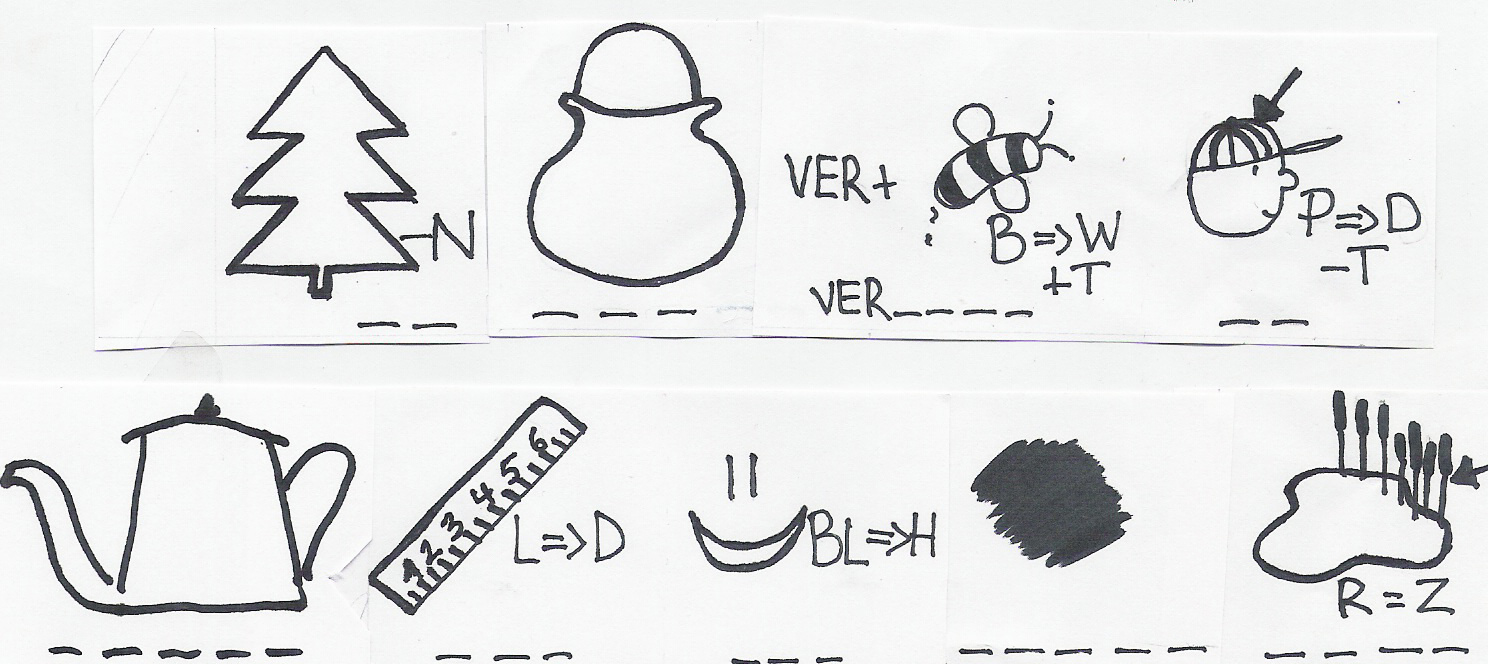 -N
VER+
B=>W
+T
VER____
P=>D
-T
1 2 3 4 5 6
L=>D
BL=>H
R=Z